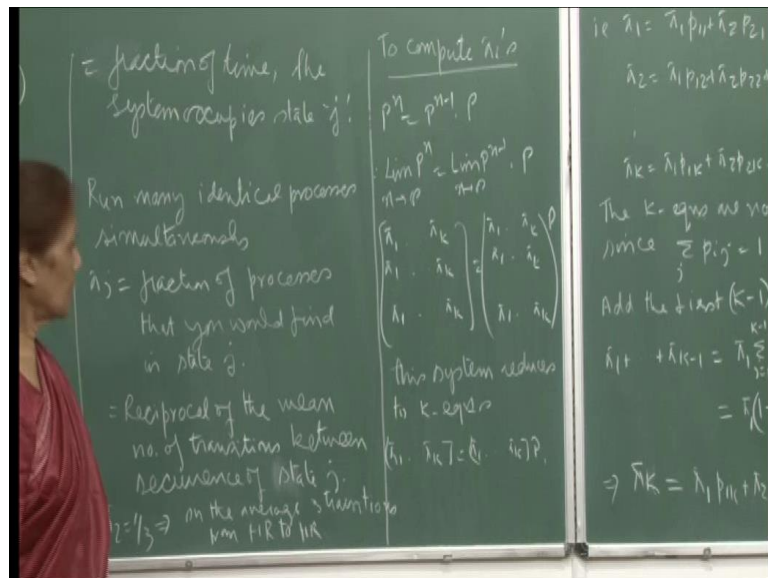 )
= fraction of time, the
system occupies state 'j'.
Run many identical processes
simultaneously
π̄j = fraction of processes
that you would find
in state j.
= Reciprocal of the mean
no. of transitions between
recurrence of state j.
π̄2 = 1/3 ⇒ on the average 3 transitions
from HR to HR
To compute π̄i's
pⁿ = pⁿ⁻¹ . P
Lim Pⁿ = Lim Pⁿ⁻¹ . P
n→∞ n→∞
(π̄1 . . π̄K) = (π̄1 . . π̄K) P
(π̄1 . . π̄K) (π̄1 . . π̄K)
(π̄1 . . π̄K) (π̄1 . . π̄K)
this system reduces
to K-eqns
[π̄1 . . π̄K] = [π̄1 . . π̄K] P.
ie π̄1 = π̄1 p11 + π̄2 p21
π̄2 = π̄1 p12 + π̄2 p22 +
π̄K = π̄1 p1K + π̄2 p2K
The K-eqns are no
since Σ pij = 1
j
Add the first (K-1)
π̄1 + . . + π̄K-1 = π̄1 Σ
= π̄1(1-
⇒ π̄K = π̄1 p1K + π̄2